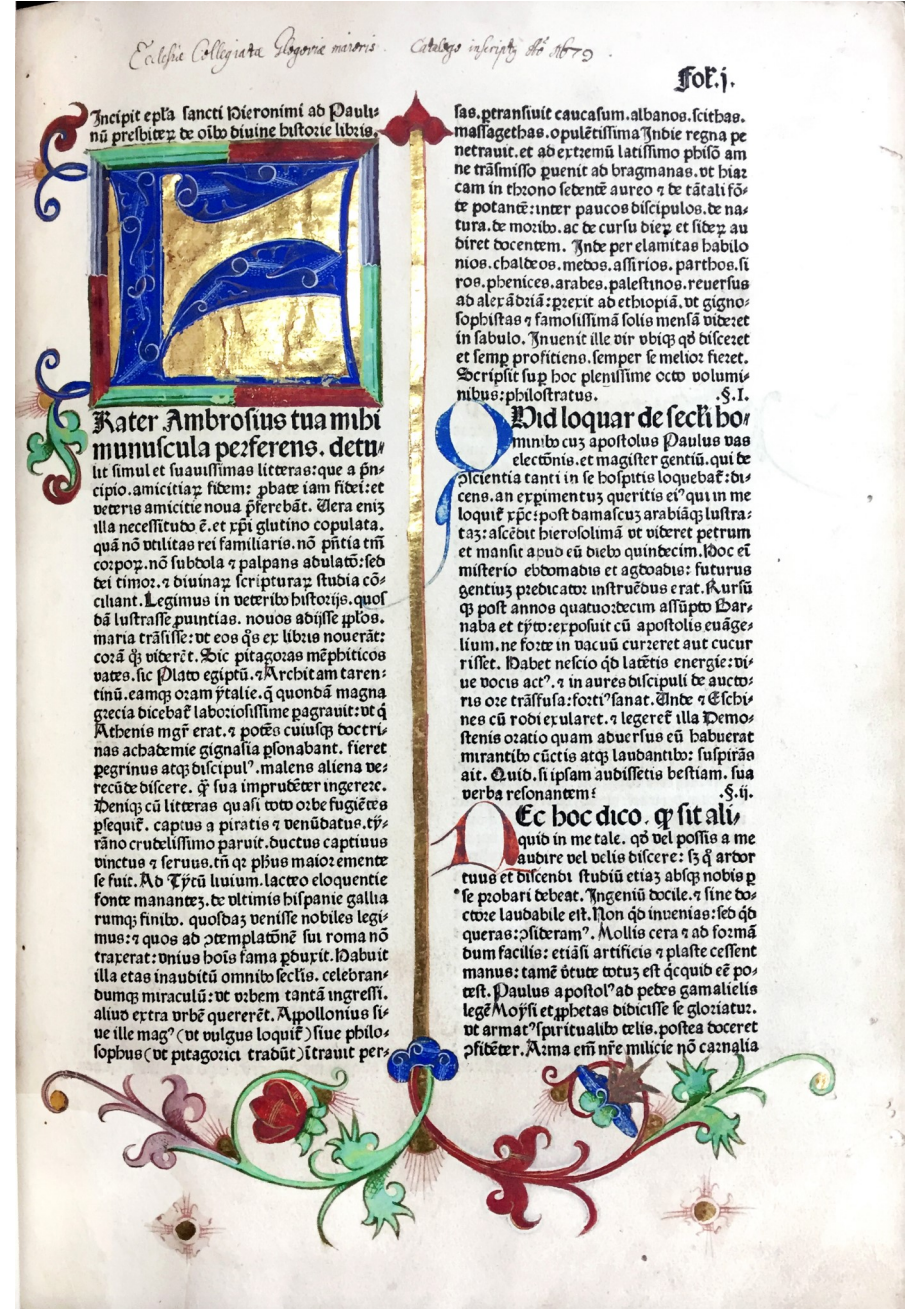 Ecclesiæ Collegiatæ Glogoviæ maioris. Catalogo inscript9 Aõ 1679.
Fol̃.j.
Incipit ep̃la sancti Hieronimi ad Pauli-
nũ presbiteꝝ de oĩbꝰ divine historie libris.
Frater Ambrosius tua mihi
munuscula perferens. detu-
lit simul et suauissimas litteras: que a p̃n-
cipio. amicitiaꝝ fidem: ꝓbate iam fidei: et
veteris amicitie noua p̃ferebãt. Uera eniꝫ
illa necessitudo ẽ. et xp̃i glutino copulata.
quã nõ vtilitas rei familiaris. nõ p̃ntia tm̃
corpoꝝ. nõ subdola ⁊ palpans adulatõ: sed
dei timor. ⁊ divinaꝝ scripturaꝝ studia cõ-
ciliant. Legimus in veteribꝰ historijs. quos
dã lustrasse ꝓuintias. nouos adijsse pp̃los.
maria trãsisse: vt eos q̃s ex libris nouerãt:
corã qꝫ viderẽt. Sic pitagoras mẽphiticos
vates. sic Plato egiptũ. ⁊ Architam taren-
tinũ. eamqꝫ oram ytalie. q̃ quondã magna
grecia dicebat̃ laboriosissime ꝑagrauit: vt q̃
Athenis mgr̃ erat. ⁊ potẽs cuiusqꝫ doctri-
nas achademie gignasia ꝑsonabant. fieret
ꝑegrinus atqꝫ discipulꝰ. malens aliena ve-
recũde discere. q̃ sua imprudẽter ingerere.
Deniqꝫ cũ litteras quasi toto orbe fugiẽtes
ꝑsequit̃. captus a piratis ⁊ venũdatus. ty-
rãno crudelissimo paruit. ductus captiuus
vinctus ⁊ seruus. tñ qr ph̃us maior emente
se fuit. Ad Tytũ liuium. lacteo eloquentie
fonte mananteꝫ. de vltimis hispanie gallia
rumqꝫ finibꝰ. quosdaꝫ venisse nobiles legi-
mus: ⁊ quos ad ꝯtemplatõnẽ sui roma nõ
traxerat: vnius hoĩs fama ꝑduxit. Habuit
illa etas inauditũ omnibꝰ sec̃lis. celebran-
dumqꝫ miraculũ: vt vrbem tantã ingressi.
aliud extra vrbẽ quererẽt. Appollonius si-
ue ille magꝰ (vt vulgus loquit̃) siue philo-
sophus (vt pitagorici tradũt) ĩtrauit per-
sas. ꝑtransiuit caucasum. albanos. scithas.
massagethas. opulẽtissima Indie regna pe
netrauit. et ad extremũ latissimo phisõ am
ne trãsmisso ꝑuenit ad bragmanas. vt hiar
cam in throno sedentẽ aureo ⁊ de tãtali fõ-
te potantẽ: inter paucos discipulos. de na-
tura. de moribꝰ. ac de cursu dieꝝ et sideꝝ au
diret docentem. Inde per elamitas babilo
nios. chaldeos. medos. assirios. parthos. si
ros. phenices. arabes. palestinos. reuersus
ad alexãdriã: ꝑrexit ad ethiopiã. vt gigno-
sophistas ⁊ famosissimã solis mensã videret
in sabulo. Inuenit ille vir vbiqꝫ qđ disceret
et semꝑ profitiens. semper se melior fieret.
Scripsit suꝑ hoc plenissime octo volumi-
nibus: philostratus. .§.I.
Quid loquar de secl̃i ho-
minibꝰ cuꝫ apostolus Paulus vas
electõnis. et magister gentiũ. qui de
ꝯscientia tanti in se hospitis loquebat̃: di-
cens. an exꝑimentuꝫ queritis eiꝰ qui in me
loquit̃ xp̃c: post damascuꝫ arabiãqꝫ lustra-
taꝫ: ascẽdit hierosolimã vt videret petrum
et mansit apud eũ diebꝰ quindecim. Hoc eñ
misterio ebdomadis et agdoadis: futurus
gentiuꝫ predicator instruẽdus erat. Rursũ
qꝫ post annos quatuordecim assũpto Bar-
naba et tyto: exposuit cũ apostolis euãge-
lium. ne forte in vacuũ curreret aut cucur
risset. Habet nescio qđ latẽtis energie: vi-
ue vocis actꝰ. ⁊ in aures discipuli de aucto-
ris ore trãsfusa: fortiꝰ sanat. Unde ⁊ Eschi-
nes cũ rodi exularet. ⁊ legeret̃ illa Demo-
stenis oratio quam aduersus eũ habuerat
mirantibꝰ cũctis atqꝫ laudantibꝰ: suspirãs
ait. Quid. si ipsam audissetis bestiam. sua
verba resonantem: .§.ij.
Nec hoc dico. qꝫ sit ali-
quid in me tale. qđ vel possis a me
audire vel velis discere: sꝫ q̃ ardor
tuus et discendi studiũ etiaꝫ absqꝫ nobis ꝑ
se probari debeat. Ingeniũ docile. ⁊ sine do-
ctore laudabile est. Non qđ inuenias: sed qđ
queras: ꝯsideramꝰ. Mollis cera ⁊ ad formã
dum facilis: etiãsi artificis ⁊ plaste cessent
manus: tamẽ ṽtute totuꝫ est q̃cquid eẽ po-
test. Paulus apostolꝰ ad pedes gamalielis
legẽ Moysi et ꝓphetas didicisse se gloriatur.
vt armatꝰ spiritualibꝰ telis. postea doceret
ꝯfidẽter. Arma em̃ nr̃e milicie nõ carnalia